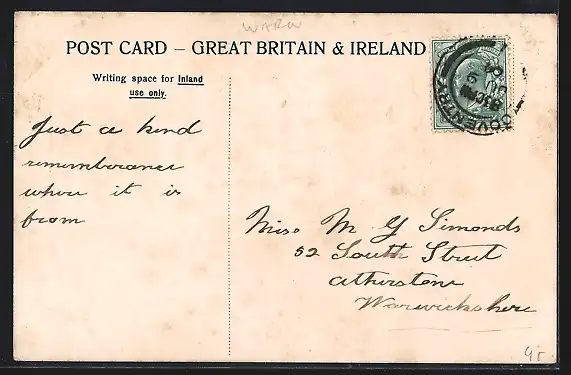 WARW
POST CARD – GREAT BRITAIN & IRELAND
Writing space for Inland
use only.
COVENTRY
Just a kind
rememberance
where it is
from
Miss M G Simonds
52 South Street
Atherstone
Warwickshire